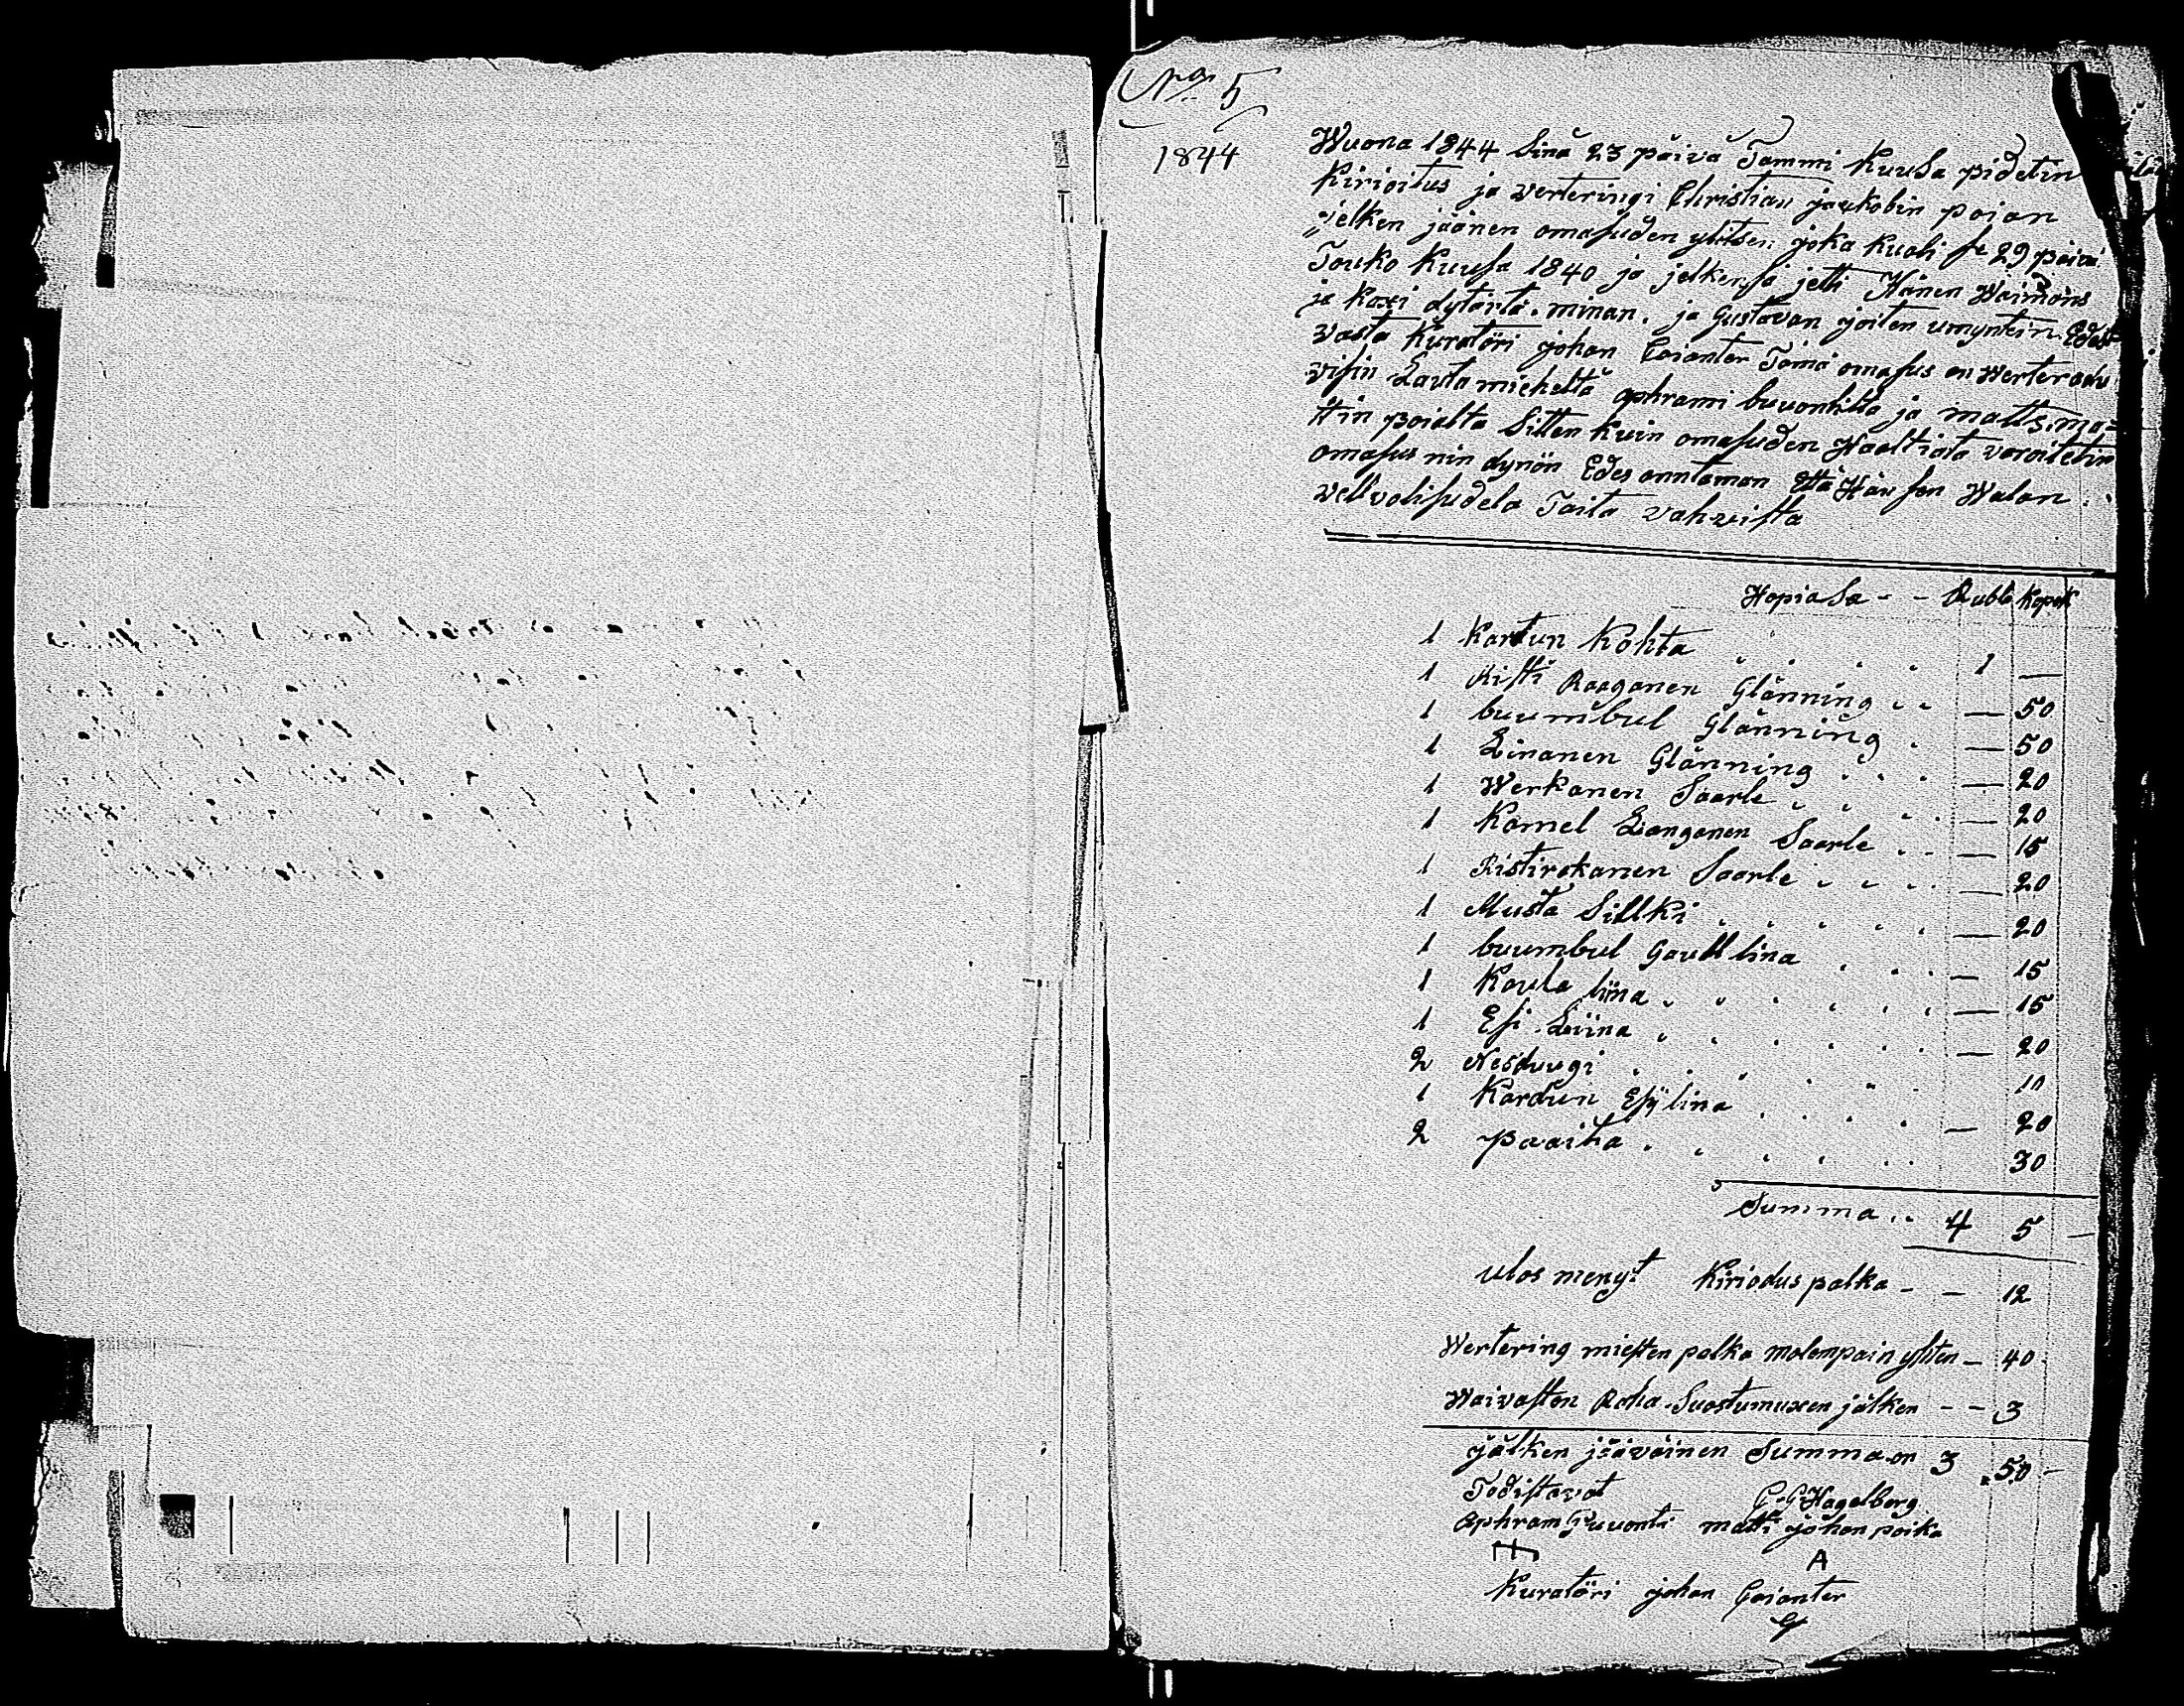 No 5
1844
Wuona 1844 Sinä 23 päivä Tammi Kuusa pidetin
Kirioitus ja verteringi Christian jaakobin poian
jelken jäänen omasuden ylitsen joka kuoli se 29 päivä
Touko Kuusa 1840 ja jelkensä jetti Hänen Waimons
ja Koxi dytärtä. minan. ja Gustavan joiten umyntein Edest
vasta Kuratöri johan Coianter Tämä omasus on Werteradu
visin Lautamieheltä aphrami buuontilta ja matts ma=
ttin poialta Sitten kuin omasuden Haaltiata varoitetin
omasus nin dynön Edes anntaman Että Hän sen Walan
velivolisudela Taita vahvista
Hopiasa - - Rubla Kopek
1 Kartun Kohta 1 —
1 Risti Raaganen Glänning — 50
1 buumbul Glänning — 50
1 Linanen Glänning — 20
1 Werkanen Saarle — 20
1 Kamel Langanen Saarle — 15
1 Ristirakanen Saarle — 20
1 Musta Sillki — 20
1 buumbul Gaull lina — 15
1 Kaula liina — 15
1 Esi Liina — 20
2 Nesduugi 10
1 Kardun Esylina — 20
2 paaita 30
Summa 4 5 —
Ulos menyt Kiriodus palka - — 12
Wertering miesten palka molempain yhten — 40
Waivasten Raha Suostumuxen jälken - - 3
jälken jäävainen Summa on 3 50 —
Todistavat G. G. Hagelberg
Aphram Guuonti matti johan poika
A
Kuratöri johan Goianter